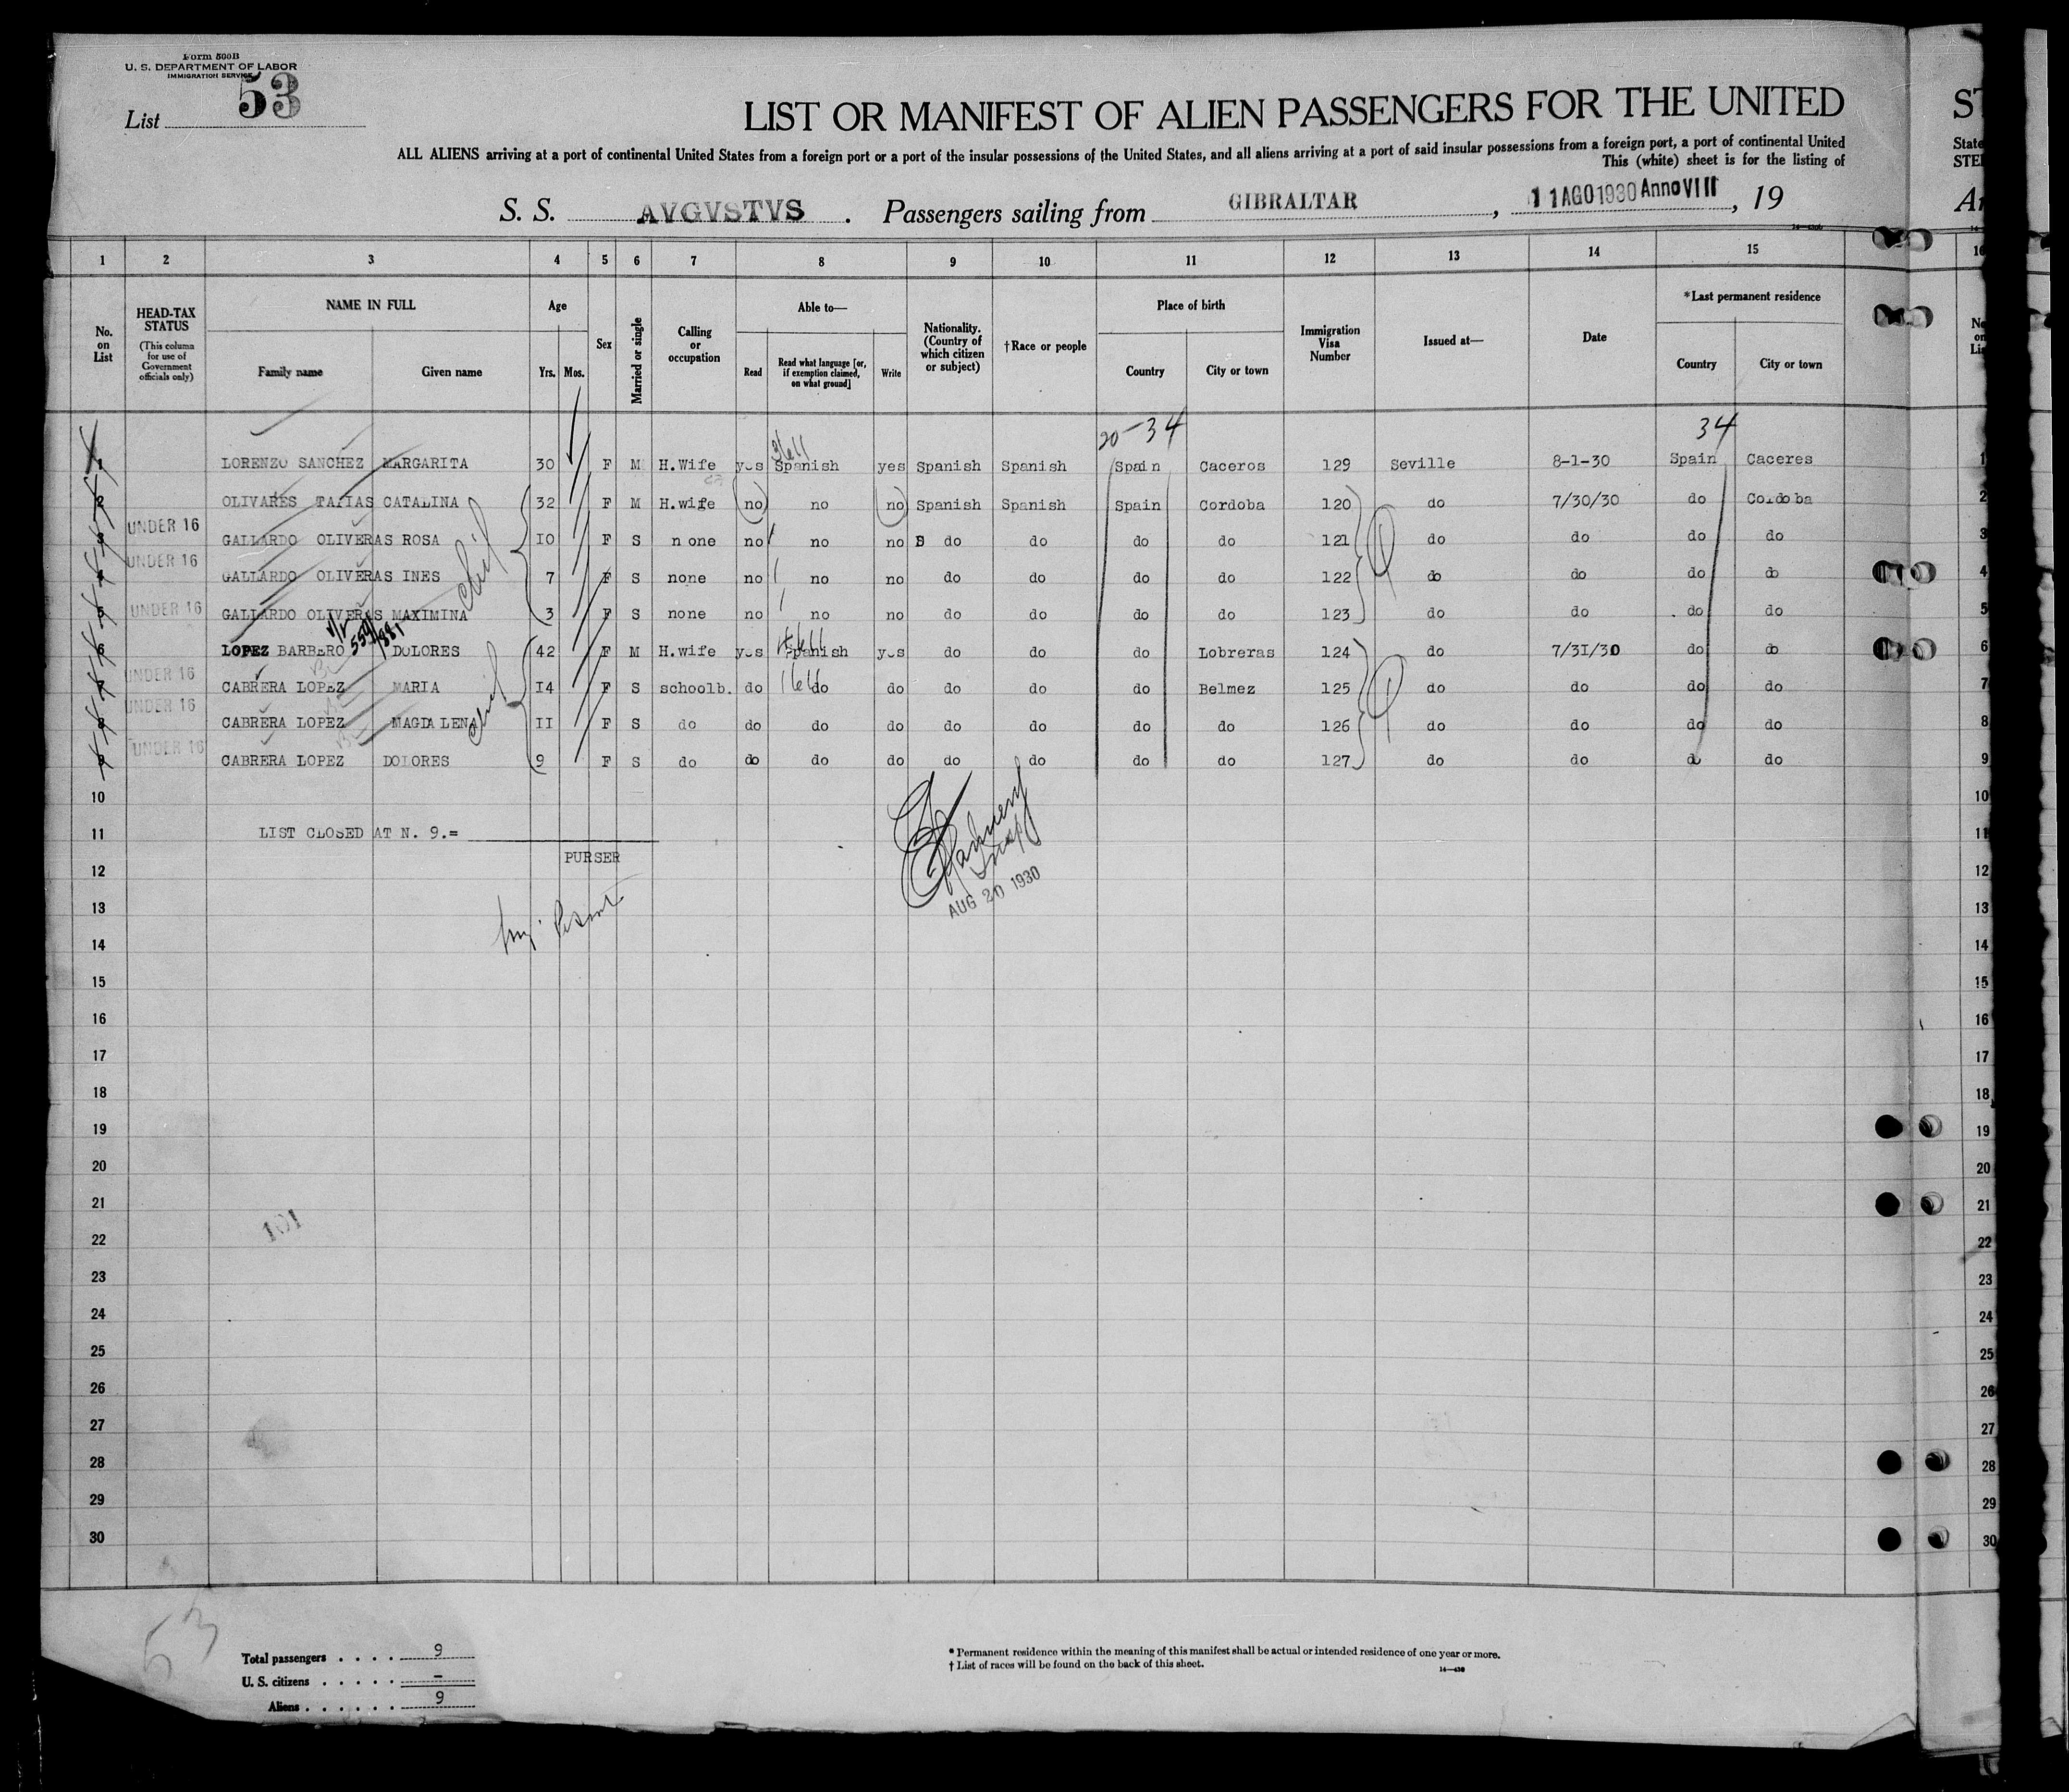 Form 500B
U. S. DEPARTMENT OF LABOR
IMMIGRATION SERVICE
List 53
LIST OR MANIFEST OF ALIEN PASSENGERS FOR THE UNITED
ALL ALIENS arriving at a port of continental United States from a foreign port or a port of the insular possessions of the United States, and all aliens arriving at a port of said insular possessions from a foreign port, a port of continental United
This (white) sheet is for the listing of
State
S. S. AVGVSTVS . Passengers sailing from GIBRALTAR , 11 AGO 1930 Anno VIII , 19
1 2 3 4 5 6 7 8 9 10 11 12 13 14 15 16
No. on List
HEAD-TAX STATUS (This column for use of Government officials only)
NAME IN FULL
Family name Given name
Age
Yrs. Mos.
Sex
Married or single
Calling or occupation
Able to—
Read
Read what language [or, if exemption claimed, on what ground]
Write
Nationality. (Country of which citizen or subject)
†Race or people
Place of birth
Country City or town
Immigration Visa Number
Issued at—
Date
*Last permanent residence
Country City or town
20-34 34
1 LORENZO SANCHEZ MARGARITA 30 F M H.Wife yes Spanish yes Spanish Spanish Spain Caceros 129 Seville 8-1-30 Spain Caceres 1
2 OLIVARES TAFIAS CATALINA 32 F M H.wife no no no Spanish Spanish Spain Cordoba 120 do 7/30/30 do Cordoba 2
3 UNDER 16 GALLARDO OLIVERAS ROSA 10 F S none no no no do do do do 121 do do do do 3
4 UNDER 16 GALLARDO OLIVERAS INES 7 F S none no no no do do do do 122 do do do do 4
5 UNDER 16 GALLARDO OLIVERAS MAXIMINA 3 F S none no no no do do do do 123 do do do do 5
6 LOPEZ BARBERO DOLORES 42 F M H.wife yes Spanish yes do do do Lobreras 124 do 7/31/30 do do 6
7 UNDER 16 CABRERA LOPEZ MARIA 14 F S schoolb. do do do do do do Belmez 125 do do do do 7
8 UNDER 16 CABRERA LOPEZ MAGDALENA 11 F S do do do do do do do do 126 do do do do 8
9 UNDER 16 CABRERA LOPEZ DOLORES 9 F S do do do do do do do do 127 do do do do 9
10 10
11 LIST CLOSED AT N. 9.= 11
PURSER
12 12
AUG 20 1930
13 13
14 14
15 15
16 16
17 17
18 18
19 19
20 20
21 21
101
22 22
23 23
24 24
25 25
26 26
27 27
28 28
29 29
30 30
53
Total passengers . . . . 9
U. S. citizens . . . . . –
Aliens . . . . . . 9
* Permanent residence within the meaning of this manifest shall be actual or intended residence of one year or more.
† List of races will be found on the back of this sheet.